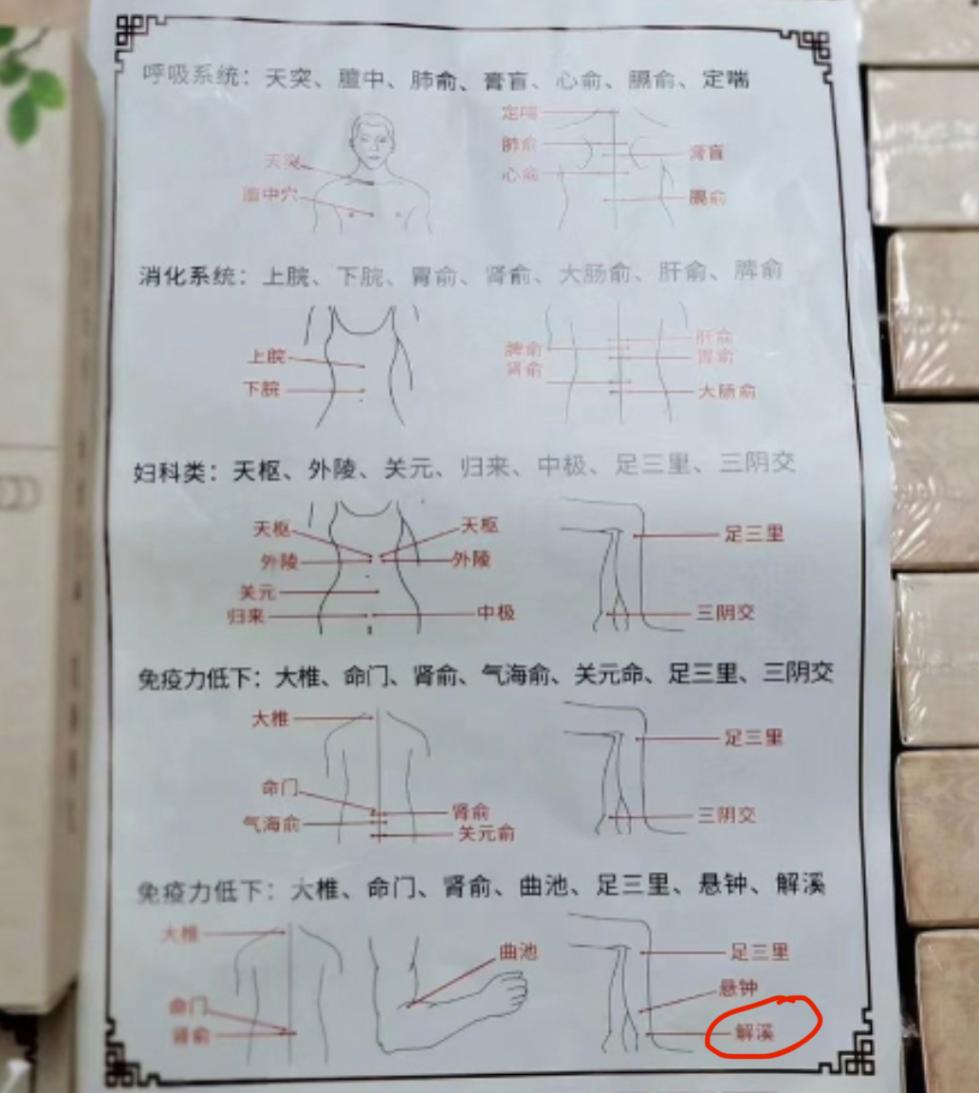 呼吸系统：天突、膻中、肺俞、膏盲、心俞、膈俞、定喘
天突
膻中穴
定喘
肺俞
心俞
膏盲
膈俞
消化系统：上脘、下脘、胃俞、肾俞、大肠俞、肝俞、脾俞
上脘
下脘
脾俞
肾俞
肝俞
胃俞
大肠俞
妇科类：天枢、外陵、关元、归来、中极、足三里、三阴交
天枢
外陵
关元
归来
天枢
外陵
中极
足三里
三阴交
免疫力低下：大椎、命门、肾俞、气海俞、关元命、足三里、三阴交
大椎
命门
气海俞
肾俞
关元俞
足三里
三阴交
免疫力低下：大椎、命门、肾俞、曲池、足三里、悬钟、解溪
大椎
命门
肾俞
曲池
足三里
悬钟
解溪